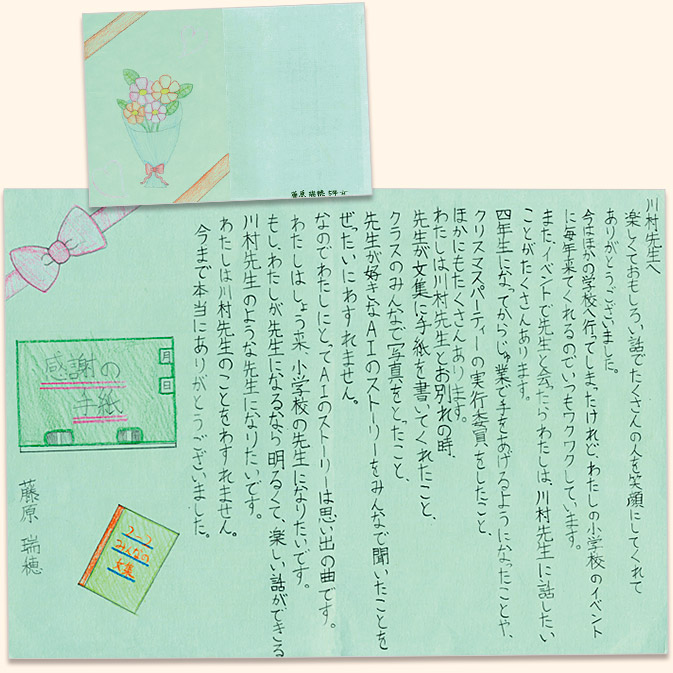 川村先生へ
楽しくておもしろい話でたくさんの人を笑顔にしてくれて
ありがとうございました。
今はほかの学校へ行ってしまったけれど、わたしの小学校のイベント
に毎年来てくれるのでいつもワクワクしています。
また、イベントで先生と会ったらわたしは、川村先生に話したい
ことがたくさんあります。
四年生になってからじゅ業で手をあげるようになったことや、
クリスマスパーティーの実行委員をしたこと、
ほかにもたくさんあります。
わたしは川村先生とお別れの時、
先生が文集に手紙を書いてくれたこと、
クラスのみんなで写真をとったこと、
先生が好きなAIのストーリーをみんなで聞いたことを
ぜったいにわすれません。
なのでわたしにとってAIのストーリーは思い出の曲です。
わたしはしょう来、小学校の先生になりたいです。
もし、わたしが先生になるなら明るくて、楽しい話ができる
川村先生のような先生になりたいです。
わたしは川村先生のことをわすれません。
今まで本当にありがとうございました。
感謝の
手紙
月
日
みんなの
文集
藤原 瑞穂